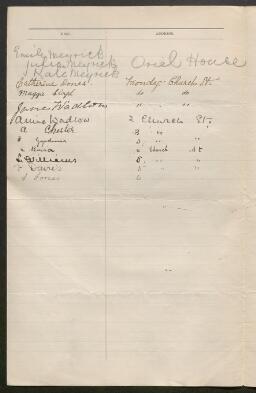 NAME. ADDRESS.
Emily Meyrick
Julia Meyrick Oriel House
Kate Meyrick
Catherine Jones Church St
Maggie Lloyd do do
Jane Wadlow " "
Annie Wadlow 2 Church St.
A Chester 3 " "
" 4 " "
" " Church St
L Williams 5 " "
" Davies 5 " "
J Jones 6 " "